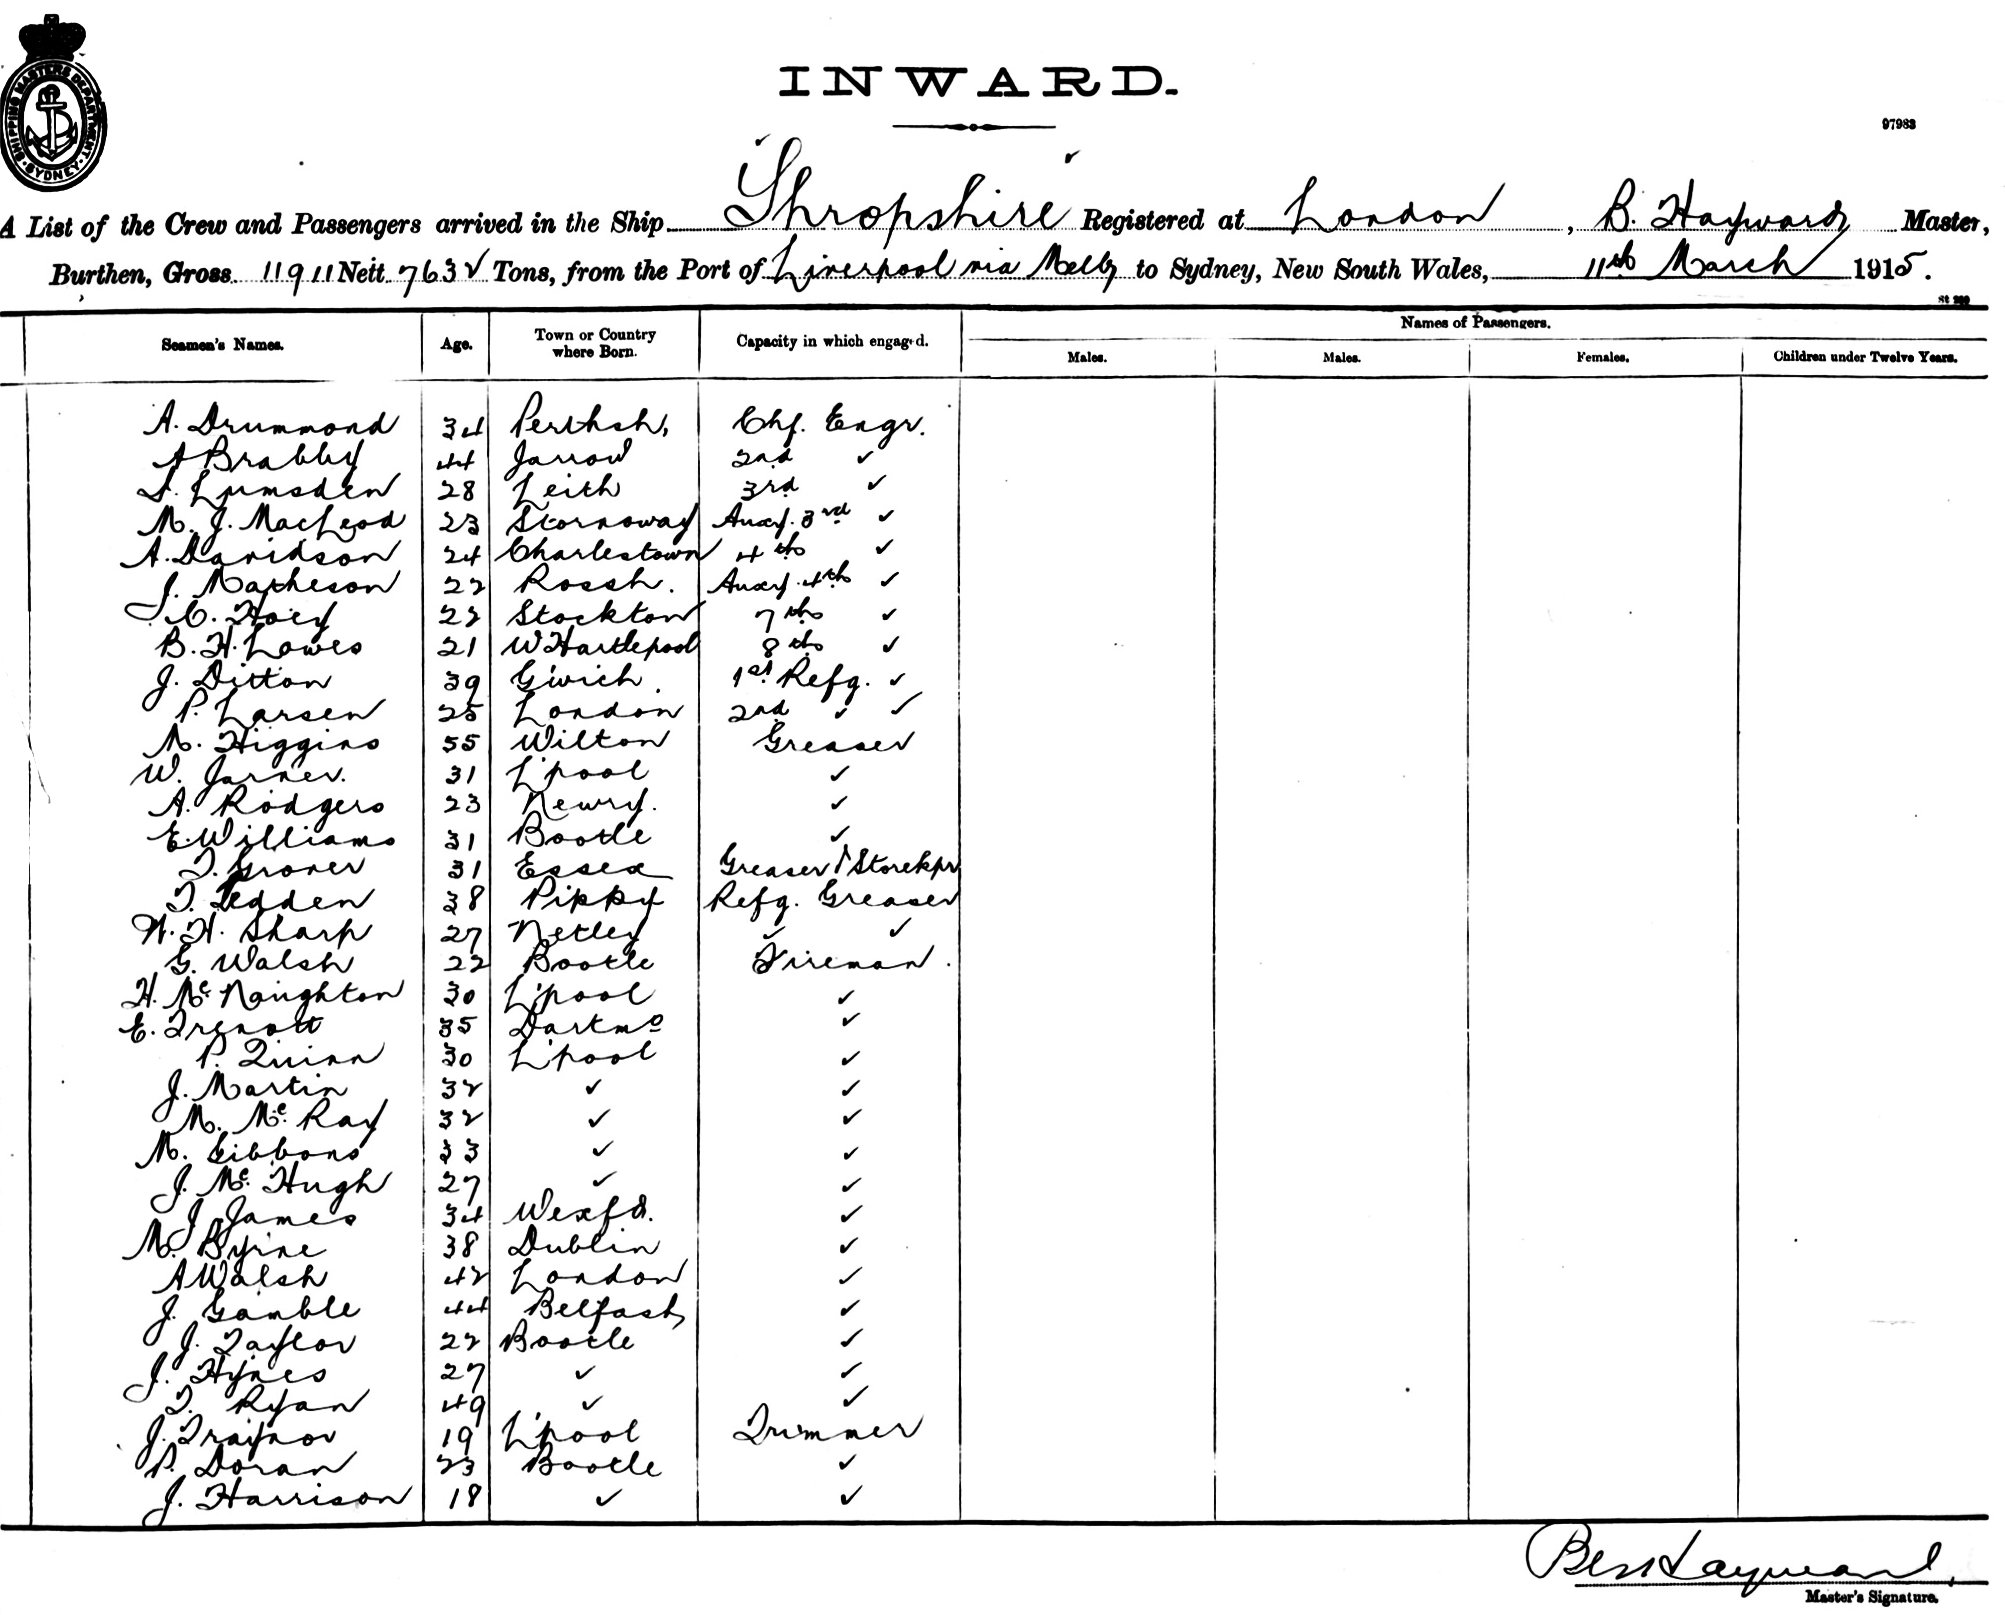 SHIPPING MASTERS DEPARTMENT. SYDNEY.
INWARD.
97983
A List of the Crew and Passengers arrived in the Ship Shropshire Registered at London, B. Hayward Master,
Burthen, Gross 11911 Nett 7632 Tons, from the Port of Liverpool via Melb to Sydney, New South Wales, 11th March 1915.
St 299
Seamen's Names. Age. Town or Country where Born. Capacity in which engaged. Names of Passengers.
Males. Males. Females. Children under Twelve Years.
A. Drummond 34 Perthsh. Chf. Engr.
A Brabby 44 Jarrow 2nd ✓
Lumsden 28 Leith 3rd ✓
M. J. MacLeod 23 Stornoway Auxy. 3rd ✓
A. Davidson 24 Charlestown 4th ✓
J. Matheson 22 Rossh. Auxy. 4th ✓
C. Hoey 22 Stockton 7th ✓
B. H. Lowes 21 W Hartlepool 8th ✓
J. Ditton 39 G'wich. 1st Refg. ✓
P. Larsen 25 London 2nd ✓ ✓
M. Higgins 55 Wilton Greaser
W. Jarner. 31 L'pool ✓
A. Rodgers 23 Newry. ✓
E. Williams 31 Bootle ✓
T. Grover 31 Essex Greaser & Storekpr
T. Ledden 38 Pippy Refg. Greaser
W. H. Sharp 27 Netley ✓ ✓
G. Walsh 22 Bootle Fireman.
H. McNaughton 30 L'pool ✓
E. Trenott 35 Dartmo ✓
P. Quinn 30 L'pool ✓
J. Martin 32 ✓ ✓
M. McRay 32 ✓ ✓
M. Gibbons 33 ✓ ✓
J. McHugh 27 ✓ ✓
J James 34 Wexfd. ✓
M. Byrne 38 Dublin ✓
A Walsh 42 London ✓
J. Gamble 44 Belfast ✓
J. Taylor 22 Bootle ✓
J. Hynes 27 ✓ ✓
T. Ryan 49 ✓ ✓
J. Traynor 19 L'pool Trimmer
P. Doran 23 Bootle ✓
J. Harrison 18 ✓ ✓
Ben Hayward,
Master's Signature.